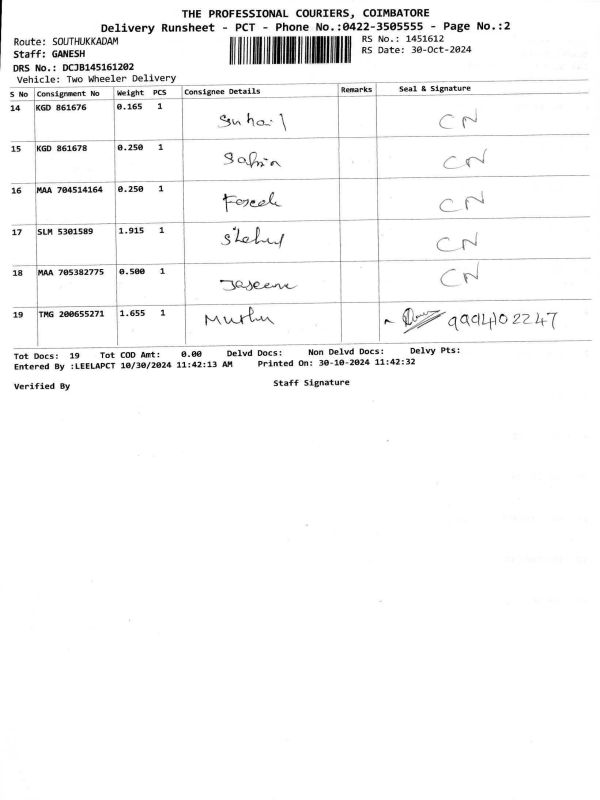 THE PROFESSIONAL COURIERS, COIMBATORE
Delivery Runsheet - PCT - Phone No.:0422-3505555 - Page No.:2
Route: SOUTHUKKADAM RS No.: 1451612
Staff: GANESH RS Date: 30-Oct-2024
DRS No.: DCJB145161202
Vehicle: Two Wheeler Delivery
S No Consignment No Weight PCS Consignee Details Remarks Seal & Signature
14 KGD 861676 0.165 1 Suhail CN
15 KGD 861678 0.250 1 CN
16 MAA 704514164 0.250 1 CN
17 SLM 5301589 1.915 1 CN
18 MAA 705382775 0.500 1 CN
19 TMG 200655271 1.655 1 Muthu 9994402247
Tot Docs: 19 Tot COD Amt: 0.00 Delvd Docs: Non Delvd Docs: Delvy Pts:
Entered By :LEELAPCT 10/30/2024 11:42:13 AM Printed On: 30-10-2024 11:42:32
Verified By Staff Signature